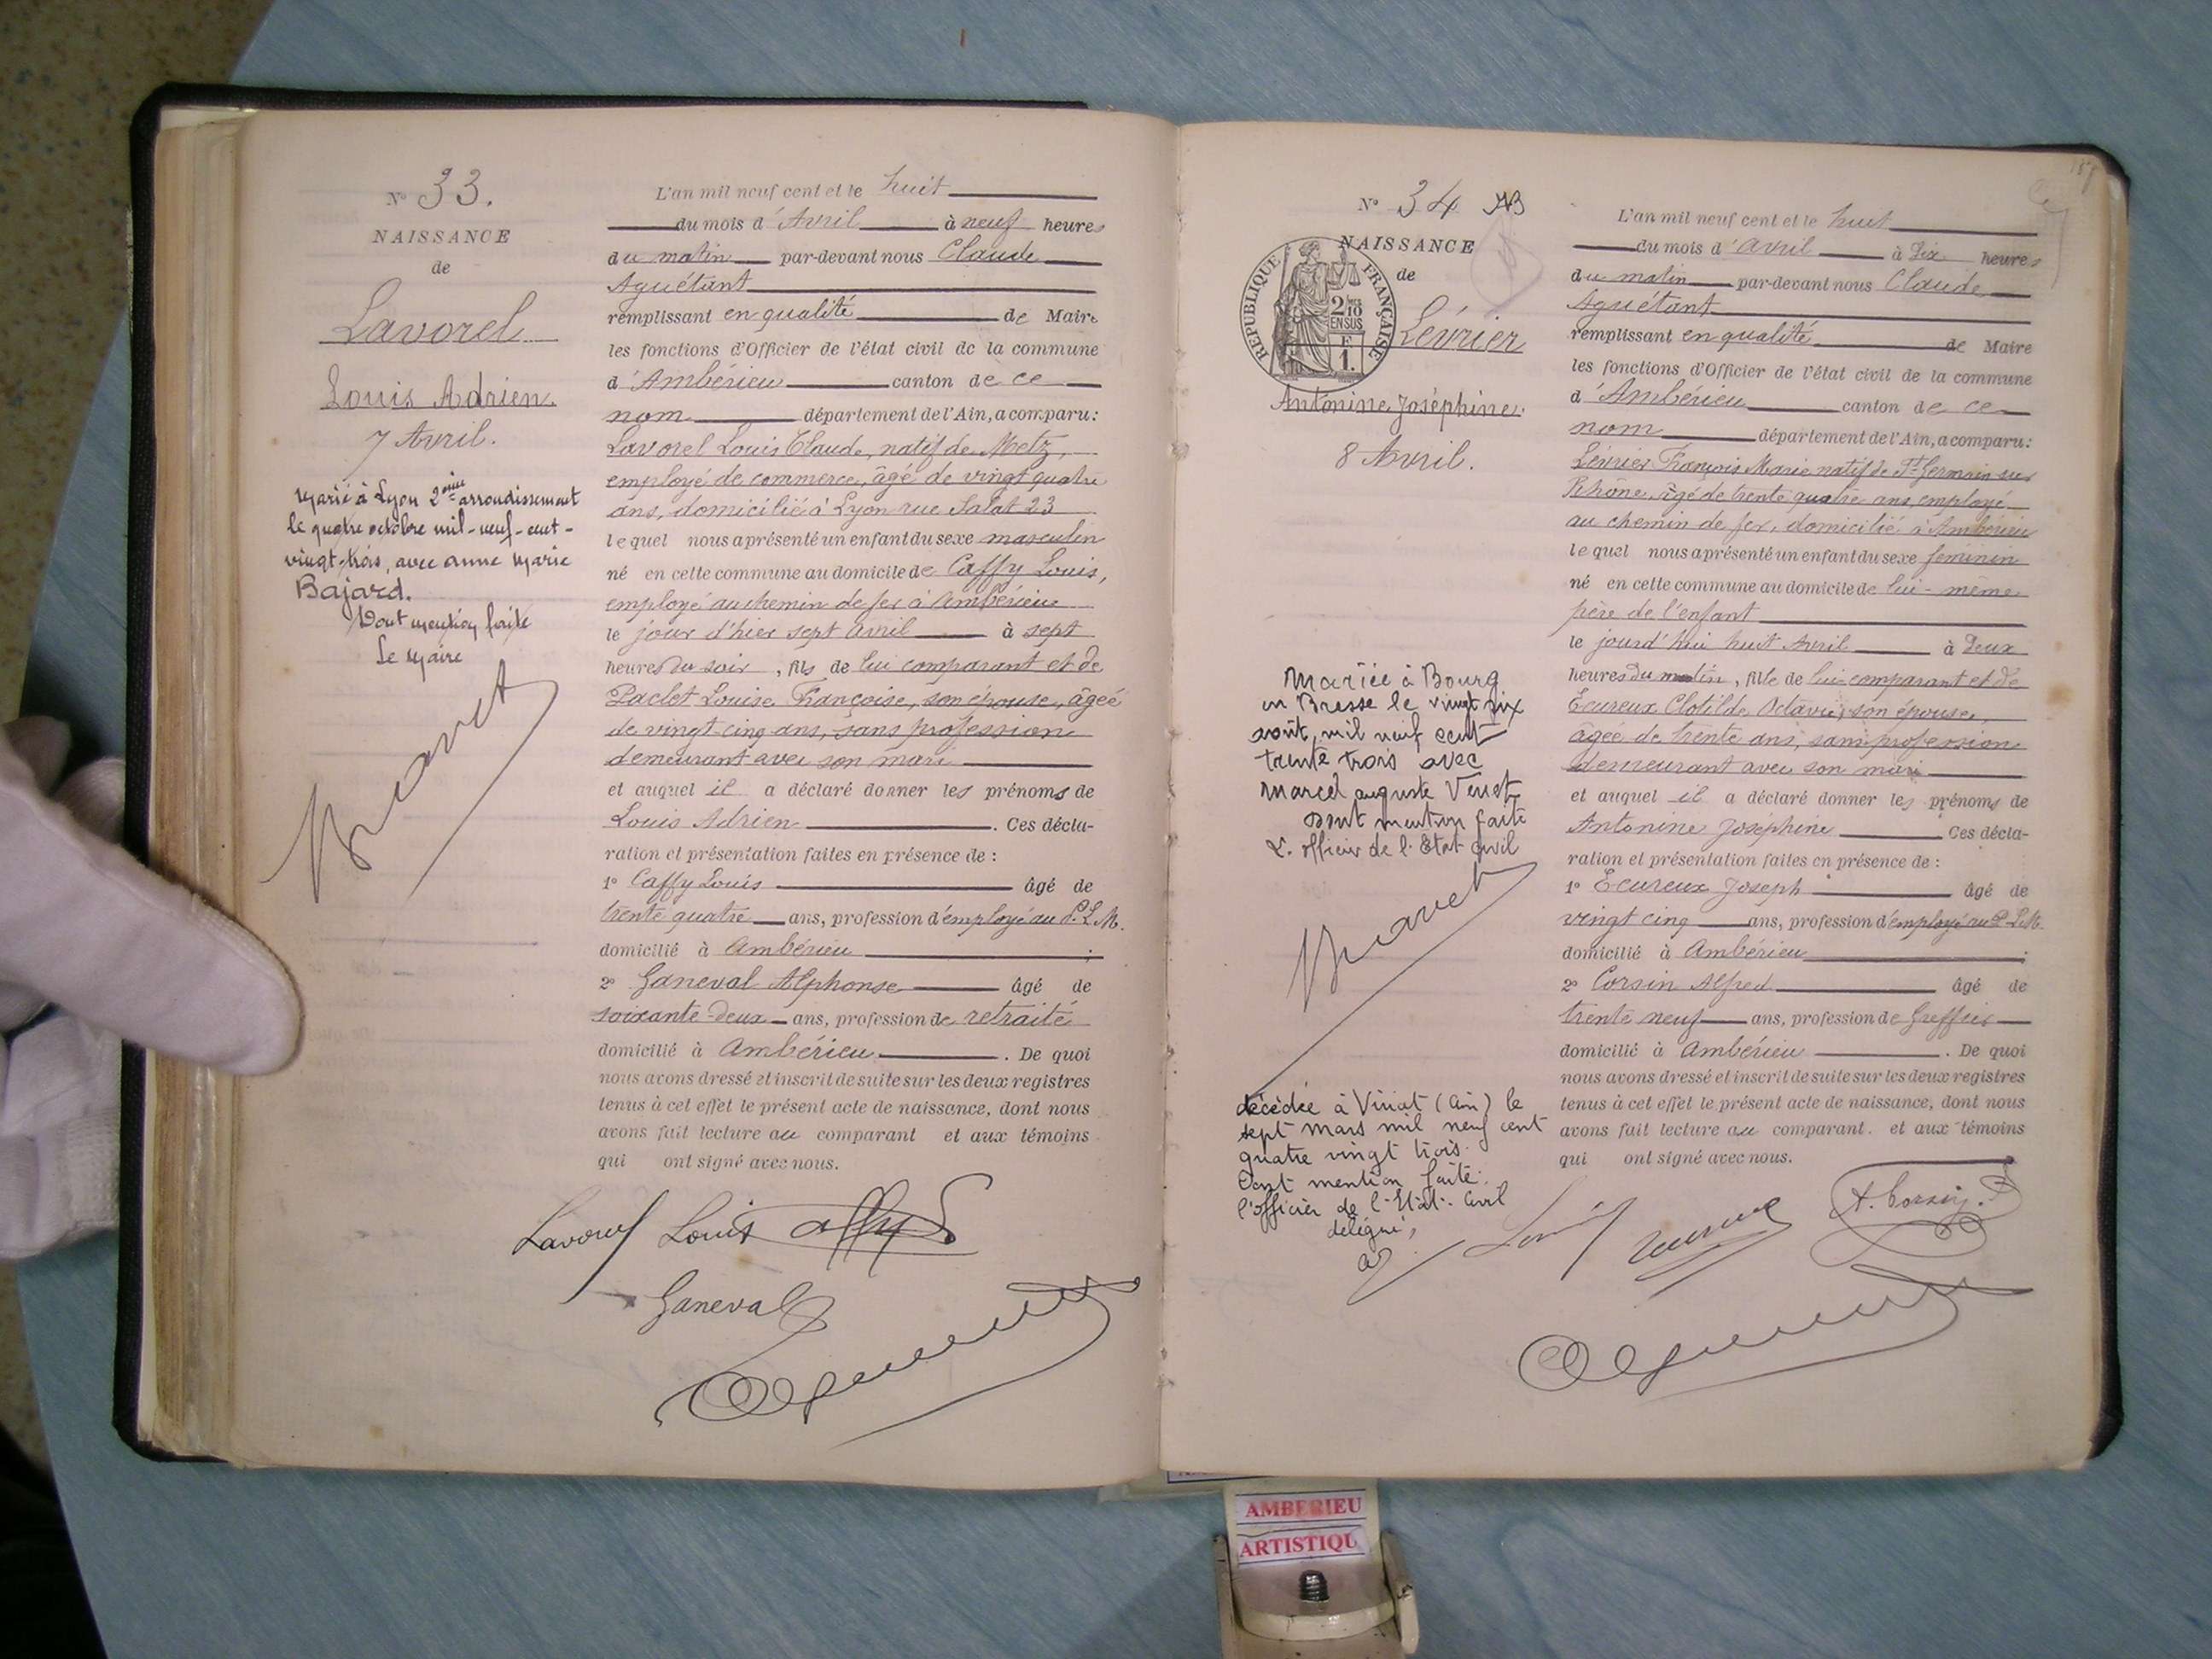 N° 33.
NAISSANCE
de
Lavorel
Louis Adrien.
7 Avril.
Marié à Lyon 2ème arrondissement
le quatre octobre mil-neuf-cent-
vingt-trois, avec Anne Marie
Bajard.
Dont mention faite
Le Maire
L'an mil neuf cent et le huit
du mois d'Avril à neuf heures
du matin par-devant nous Claude
Aguétant
remplissant en qualité de Maire
les fonctions d'Officier de l'état civil de la commune
d'Ambérieu canton de ce
nom département de l'Ain, a comparu:
Lavorel Louis Claude, natif de Metz,
employé de commerce, âgé de vingt quatre
ans, domicilié à Lyon rue Salat 23
lequel nous a présenté un enfant du sexe masculin
né en cette commune au domicile de Caffy Louis,
employé au chemin de fer à Ambérieu
le jour d'hier sept avril à sept
heures du soir, fils de lui comparant et de
Paclet Louise Françoise, son épouse, âgée
de vingt cinq ans, sans profession
demeurant avec son mari
et auquel il a déclaré donner les prénoms de
Louis Adrien. Ces décla-
ration et présentation faites en présence de :
1° Caffy Louis âgé de
trente quatre ans, profession d'employé au P.L.M.
domicilié à Ambérieu ;
2° Ganeval Alphonse âgé de
soixante-deux ans, profession de retraité
domicilié à Ambérieu. De quoi
nous avons dressé et inscrit de suite sur les deux registres
tenus à cet effet le présent acte de naissance, dont nous
avons fait lecture au comparant et aux témoins
qui ont signé avec nous.
Lavorel Louis Caffy
Ganeval
Aguétant
N° 34
NAISSANCE
de
RÉPUBLIQUE FRANÇAISE
2/10
EN SUS
F.
1.
Lévrier
Antonine Joséphine.
8 Avril.
Mariée à Bourg
en Bresse le vingt six
août mil neuf cent
trente trois avec
Marcel Auguste
Dont mention faite
L'officier de l'Etat civil
décédée à Viriat (Ain) le
sept mars mil neuf cent
quatre vingt trois.
Dont mention faite.
l'officier de l'Etat-Civil
délégué,
L'an mil neuf cent et le huit
du mois d'avril à dix heures
du matin par-devant nous Claude
Aguétant
remplissant en qualité de Maire
les fonctions d'Officier de l'état civil de la commune
d'Ambérieu canton de ce
nom département de l'Ain, a comparu:
Lévrier François Marie natif de St Germain sur
Rhône, âgé de trente quatre ans, employé
au chemin de fer, domicilié à Ambérieu
lequel nous a présenté un enfant du sexe féminin
né en cette commune au domicile de lui-même
père de l'enfant
le jourd'hui huit Avril à deux
heures du matin, fille de lui comparant et de
Ecureux Clotilde Octavie, son épouse,
âgée de trente ans, sans profession
demeurant avec son mari
et auquel il a déclaré donner les prénoms de
Antonine Joséphine Ces décla-
ration et présentation faites en présence de :
1° Ecureux Joseph âgé de
vingt cinq ans, profession d'employé au P.L.M.
domicilié à Ambérieu ;
2° Corsin Alfred âgé de
trente neuf ans, profession de Greffier
domicilié à Ambérieu. De quoi
nous avons dressé et inscrit de suite sur les deux registres
tenus à cet effet le présent acte de naissance, dont nous
avons fait lecture au comparant. et aux témoins
qui ont signé avec nous.
A. Corsin
Aguétant
AMBERIEU
ARTISTIQU